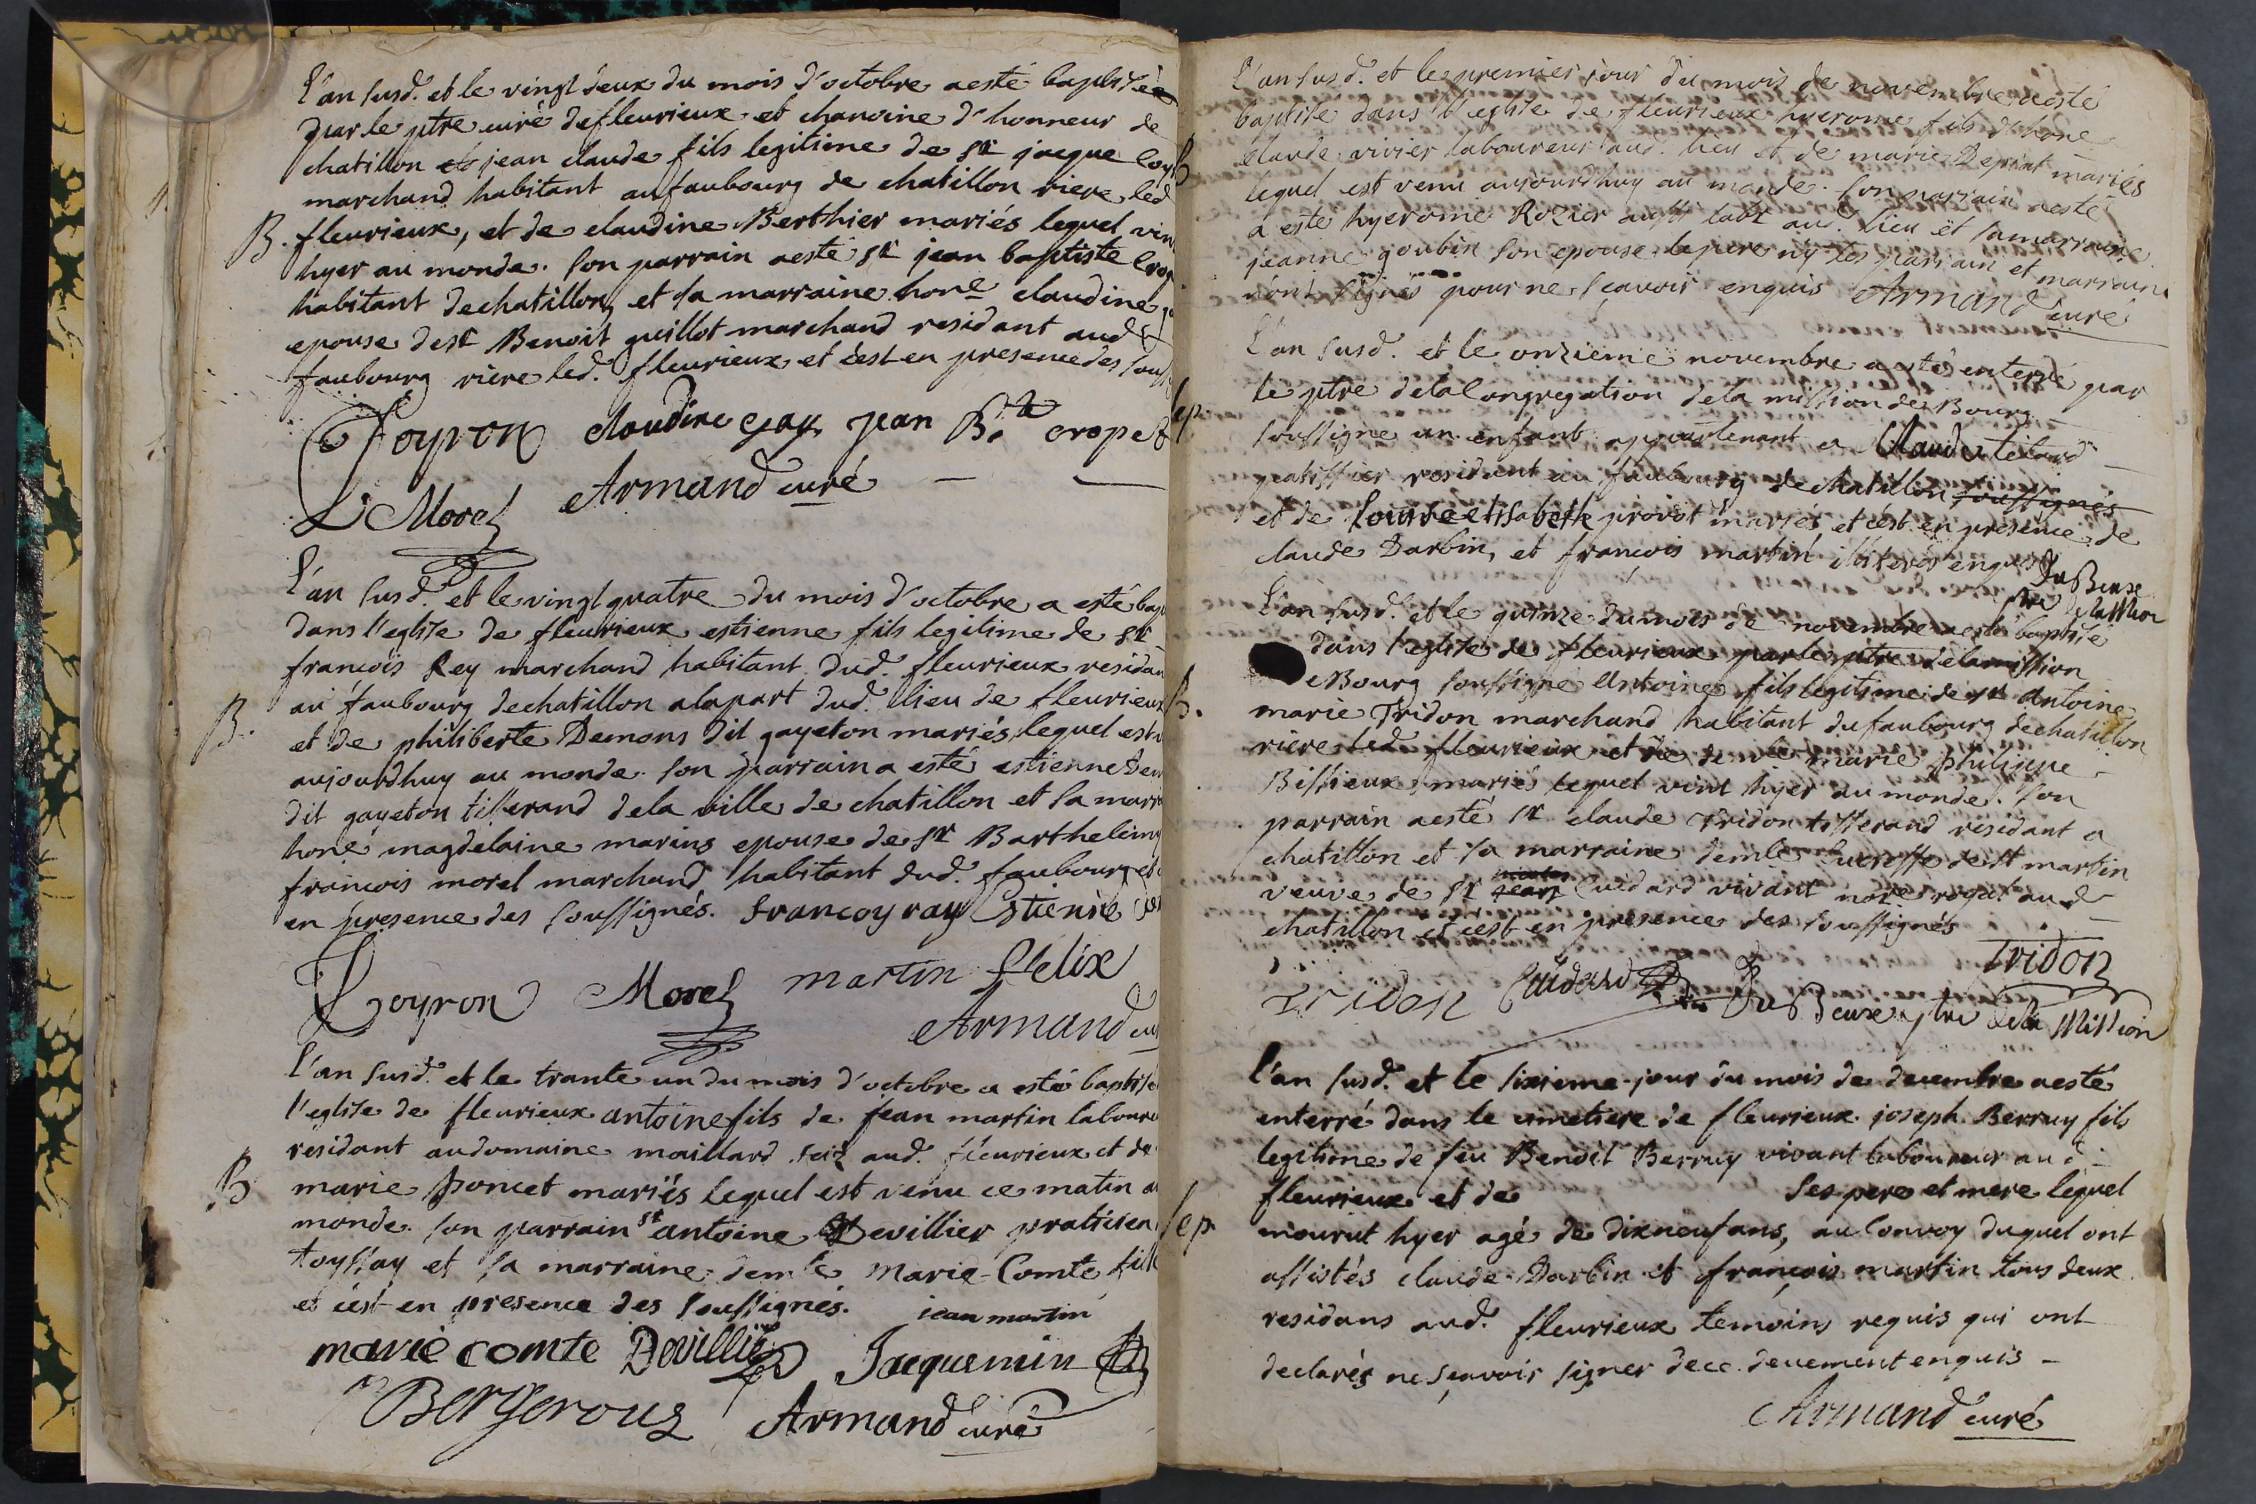 L'an susd. et le vingt deux du mois d'octobre a esté baptisé
par le ptre curé de fleurieux et chanoine d'honneur de
chatillon jean claude fils legitime de sr jacque
marchand habitant au faubourg de chatillon riere led
B. fleurieux, et de claudine Berthier mariés lequel vin
hyer au monde. son parrain a esté sr jean baptiste
habitant de chatillon, et sa marraine hone claudine
epouse de sr Benoit guillot marchand residant aud
faubourg riere led. fleurieux et c'est en presence des sous
Poyron claudine gay jean B.te cropet
Morel Armand curé
L'an susd. et le vingt quatre du mois d'octobre a esté bap
dans l'eglise de fleurieux estienne fils legitime de sr
francois Rey marchand habitant dud. fleurieux residan
au faubourg de chatillon a la part dud. lieu de fleurieux
B. et de philiberte Demons dit gayeton mariés, lequel est
aujourdhuy au monde. son parrain a esté estienne Dem
dit gayeton tisserand de la ville de chatillon et sa marr
hone magdelaine marins epouse de sr Barthelemy
francois morel marchand habitant dud. faubourg et
en presence des soussignés. francoy ray Estienne
Poyron Morel martin felix
Armand cu
L'an susd. et le trante un du mois d'octobre a esté baptisé
l'eglise de fleurieux antoine fils de jean martin laboure
residant au domaine maillard seiz aud. fleurieux et de
B marie poncet mariés lequel est venu ce matin au
monde. son parrain sr antoine Devillier praticien
toyssay et sa marraine demle marie Comte fille
et c'est en presence des soussignés. jean martin
marie comte Devillier Jacquemin
Bergerouz Armand curé
L'an susd. et le premier jour du mois de novembre a esté
B baptisé dans l'eglise de fleurieux hyerome fils d'hone
claude vivier laboureur aud. lieu et de marie Depriat mariés
lequel est venu aujourdhuy au monde. son parrain a esté
a esté hyerome Rozier aussi labr aud. lieu et sa marraine
jeanne goubin son epouse. le pere ny les parrain et marraine
n'ont signés pour ne sçavoir enquis Armand curé
L'an susd. et le onzieme novembre a esté enterré par
Sep. le ptre de la Congregation de la mission de Bourg
soussigné un enfant appartenant a Claude
patissier resident au faubourg de chatillon soussignés
et de Louise elisabeth provot mariés, et c'est en presence de
claude Darbin, et francois martin illiterés enquis
DuBeuse ptre de la Mion
L'an susd. et le quinze du mois de novembre a esté baptisé
dans l'eglise de fleurieux par le ptre de la mission
B. Bourg soussigné Antoine fils legitime de sr Antoine
marie Tridon marchand habitant du faubourg de chatillon
riere led. fleurieux et de demle marie philippe
Bissieux mariés lequel vint hyer au monde. son
parrain a esté sr claude Tridon tisserand residant a
chatillon et sa marraine demle Lucresse de st martin
veuve de sr nicolas jean Cuidard vivant nore royal aud
chatillon et c'est en presence des soussignés
Tridon
Tridon Cuidard DuBeuse ptre de la Mission
L'an susd. et le sixieme jour du mois de decembre a esté
enterré dans le cimetiere de fleurieux joseph Berruy fils
legitime de feu Benoit Berruy vivant laboureur aud
fleurieux et de ses pere et mere lequel
Sep mourut hyer agé de dixneuf ans, au convoy duquel ont
assistés claude Darbin et françois martin tous deux
residans aud. fleurieux temoins requis qui ont
declarés ne sçavoir signer de ce deuement enquis
Armand curé